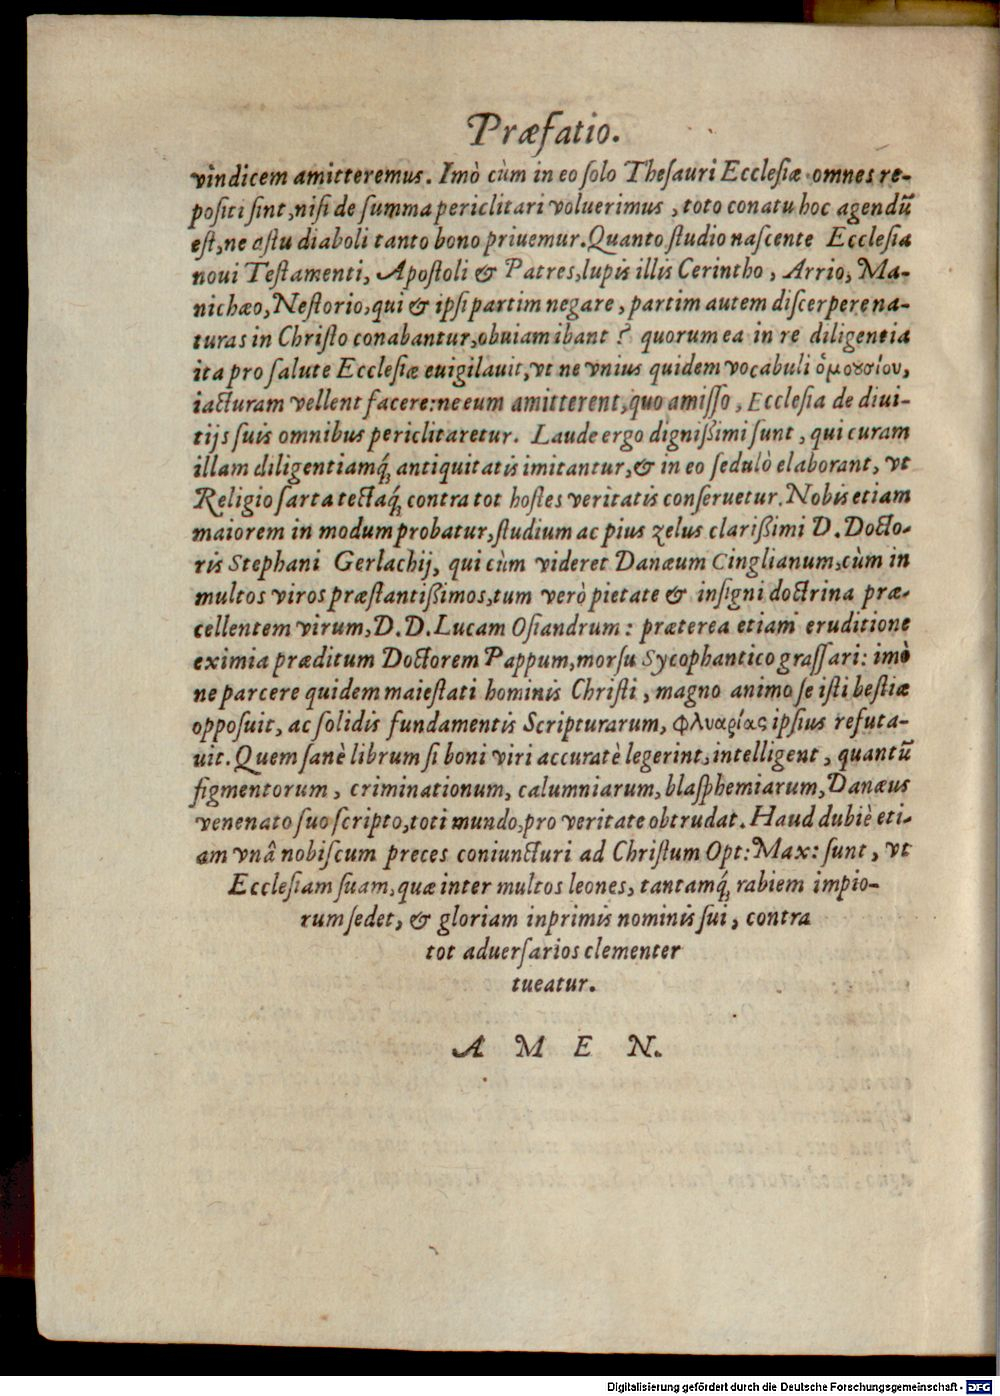 Præfatio.
vindicem amitteremus. Imò cùm in eo solo Thesauri Ecclesiæ omnes re-
positi sint, nisi de summa periclitari voluerimus, toto conatu hoc agendũ
est, ne astu diaboli tanto bono priuemur. Quanto studio nascente Ecclesia
noui Testamenti, Apostoli & Patres, lupis illis Cerintho, Arrio, Ma-
nichæo, Nestorio, qui & ipsi partim negare, partim autem discerpere na-
turas in Christo conabantur, obuiam ibant? quorum ea in re diligentia
ita pro salute Ecclesiæ euigilauit, vt ne vnius quidem vocabuli ὁμουσίου,
iacturam vellent facere: ne eum amitterent, quo amisso, Ecclesia de diui-
tijs suis omnibus periclitaretur. Laude ergo dignißimi sunt, qui curam
illam diligentiamq́; antiquitatis imitantur, & in eo sedulò elaborant, vt
Religio sarta tectaq́; contra tot hostes veritatis conseruetur. Nobis etiam
maiorem in modum probatur, studium ac pius zelus clarißimi D. Docto-
ris Stephani Gerlachij, qui cùm videret Danæum Cinglianum, cùm in
multos viros præstantißimos, tum verò pietate & insigni doctrina præ-
cellentem virum, D. D. Lucam Osiandrum: præterea etiam eruditione
eximia præditum Doctorem Pappum, morsu Sycophantico grassari: imò
ne parcere quidem maiestati hominis Christi, magno animo se isti bestiæ
opposuit, ac solidis fundamentis Scripturarum, φλυαρίας ipsius refuta-
uit. Quem sanè librum si boni viri accuratè legerint, intelligent, quantũ
figmentorum, criminationum, calumniarum, blasphemiarum, Danæus
venenato suo scripto, toti mundo, pro veritate obtrudat. Haud dubiè eti-
am vnâ nobiscum preces coniuncturi ad Christum Opt: Max: sunt, vt
Ecclesiam suam, quæ inter multos leones, tantamq́; rabiem impio-
rum sedet, & gloriam inprimis nominis sui, contra
tot aduersarios clementer
tueatur.
A M E N.
Digitalisierung gefördert durch die Deutsche Forschungsgemeinschaft - DFG